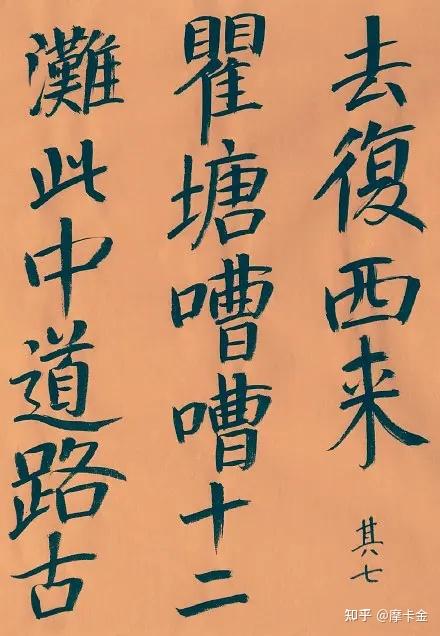 去復西来
其七
瞿塘嘈嘈十二
灘此中道路古
知乎 @摩卡金